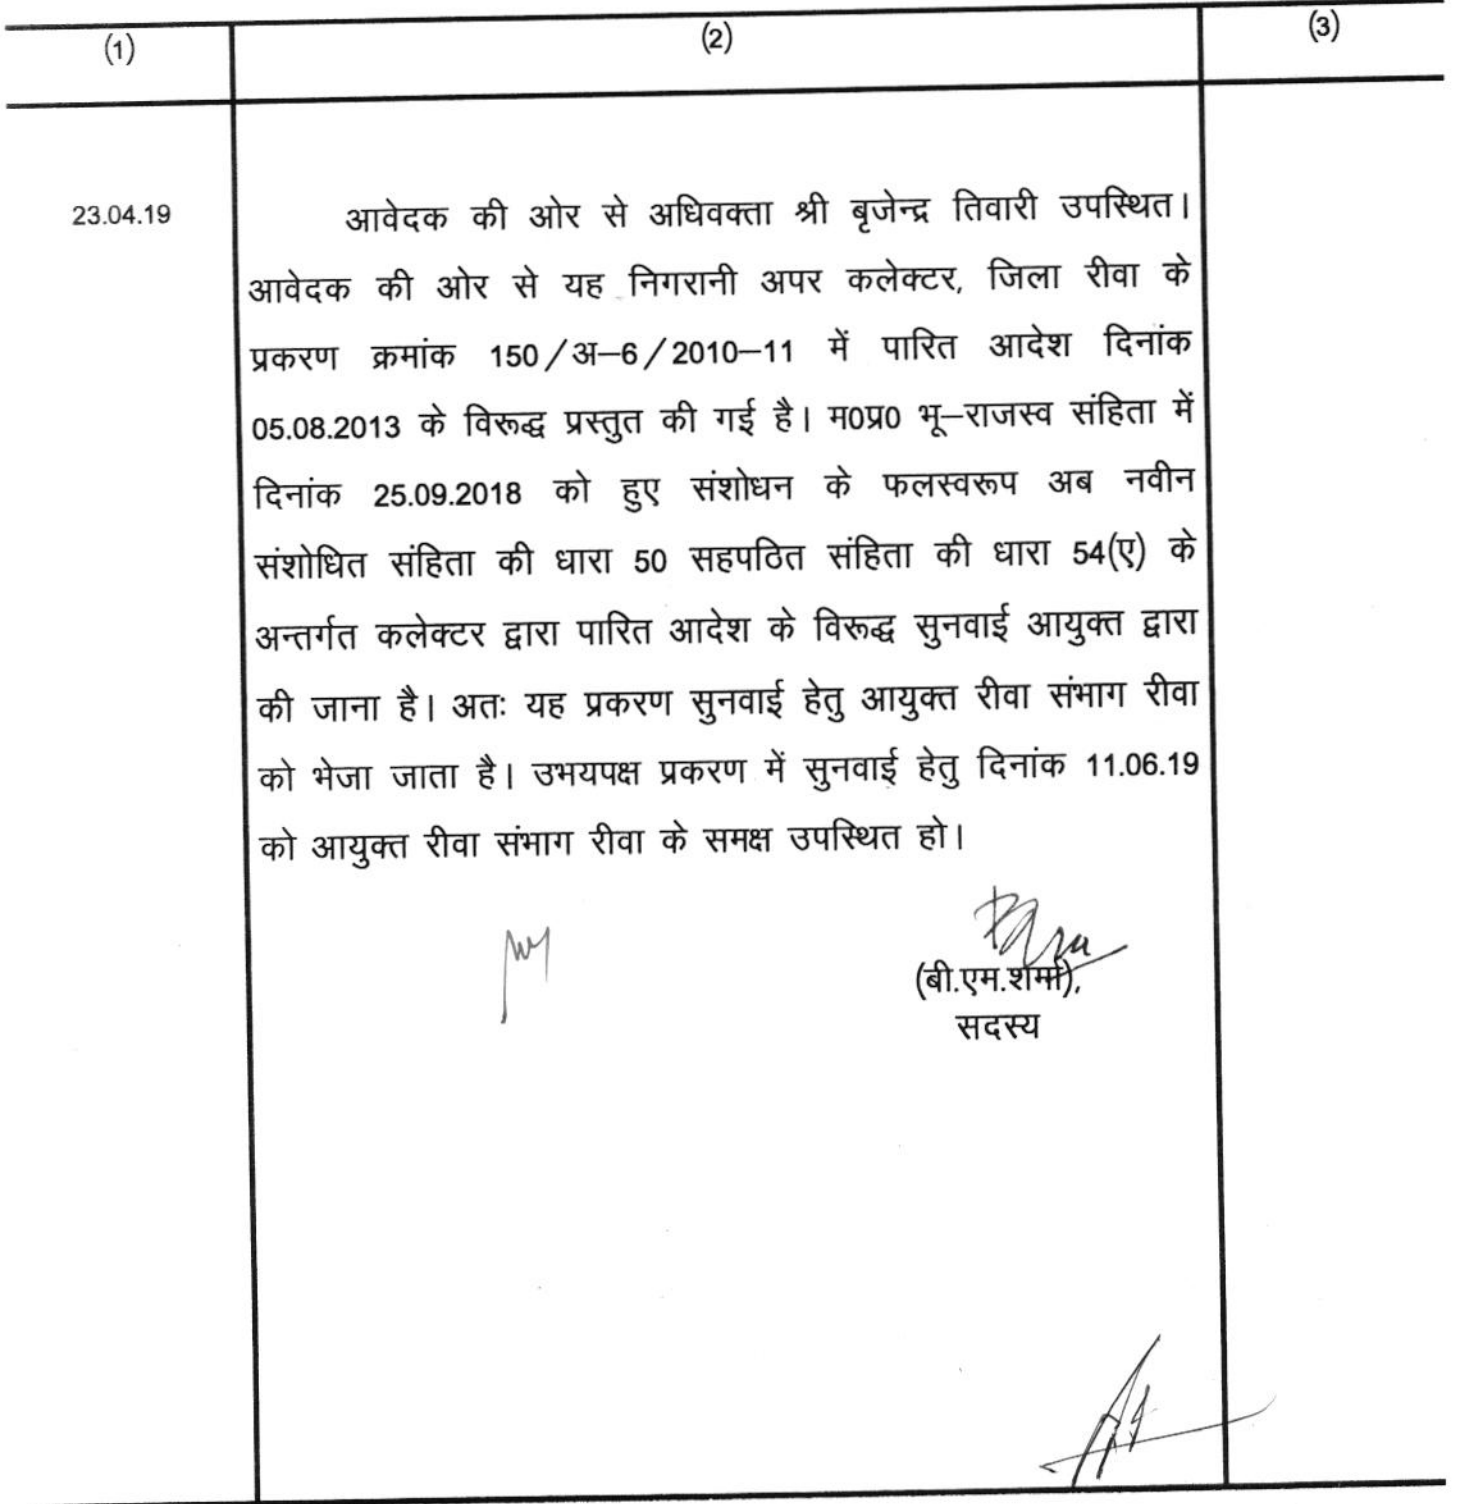 (1) (2) (3)
23.04.19 आवेदक की ओर से अधिवक्ता श्री बृजेन्द्र तिवारी उपस्थित।
आवेदक की ओर से यह निगरानी अपर कलेक्टर, जिला रीवा के
प्रकरण क्रमांक 150/अ–6/2010–11 में पारित आदेश दिनांक
05.08.2013 के विरूद्ध प्रस्तुत की गई है। म0प्र0 भू–राजस्व संहिता में
दिनांक 25.09.2018 को हुए संशोधन के फलस्वरूप अब नवीन
संशोधित संहिता की धारा 50 सहपठित संहिता की धारा 54(ए) के
अन्तर्गत कलेक्टर द्वारा पारित आदेश के विरूद्ध सुनवाई आयुक्त द्वारा
की जाना है। अतः यह प्रकरण सुनवाई हेतु आयुक्त रीवा संभाग रीवा
को भेजा जाता है। उभयपक्ष प्रकरण में सुनवाई हेतु दिनांक 11.06.19
को आयुक्त रीवा संभाग रीवा के समक्ष उपस्थित हो।
(बी.एम.शर्मा),
सदस्य